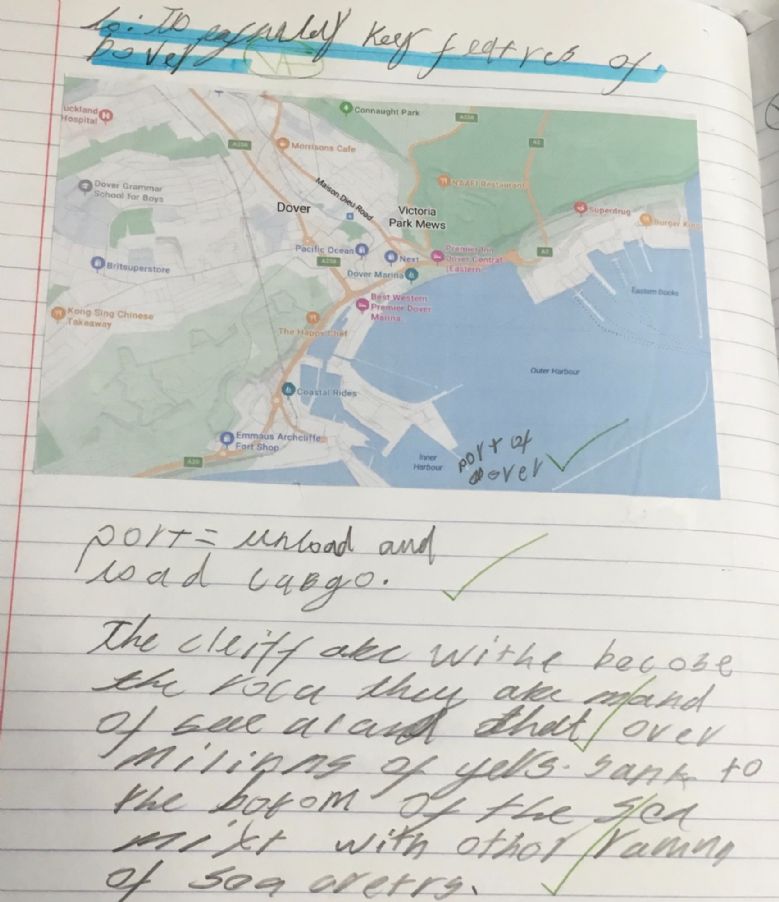 Lo: To key features of
Dover
uckland
Hospital
Connaught Park
A256
A258
A2
Morrisons Cafe
Dover Grammar
School for Boys
Maison Dieu Road
NAAFI Restaurant
Dover
Victoria
Park Mews
Superdrug
Burger King
Pacific Ocean
Next
Premier Inn
Dover Central
(Eastern
A2
Britsuperstore
A256
Dover Marina
Eastern Docks
Best Western
Premier Dover
Marina
Kong Sing Chinese
Takeaway
The Happy Chef
Outer Harbour
Coastal Rides
Emmaus Archcliffe
Fort Shop
A20
Inner
Harbour
port of
Dover
port = unload and
load cargo.
The cleiff are withe becose
the roca they are mand
of see that over
milinns of yers. sank to
the botom of the sea
mixt with other
of sea